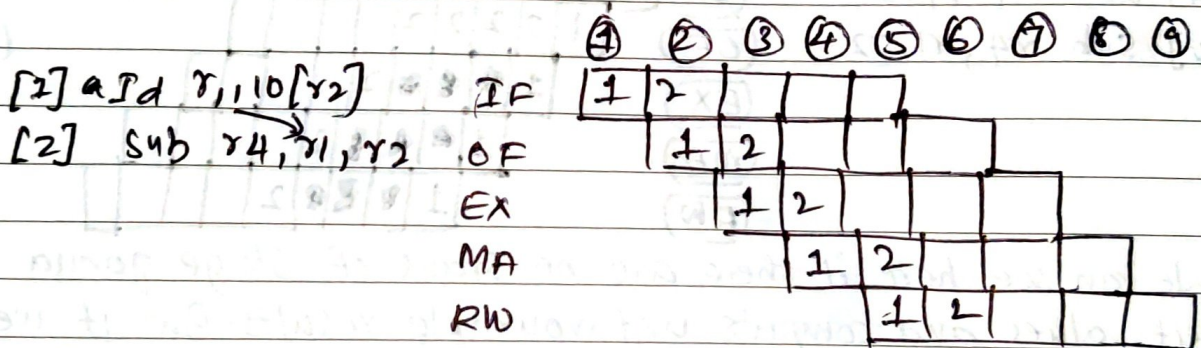 ① ② ③ ④ ⑤ ⑥ ⑦ ⑧ ⑨
[1] ald r1,10[r2] IF 1 2
[2] sub r4, r1, r2 OF 1 2
EX 1 2
MA 1 2
RW 1 2